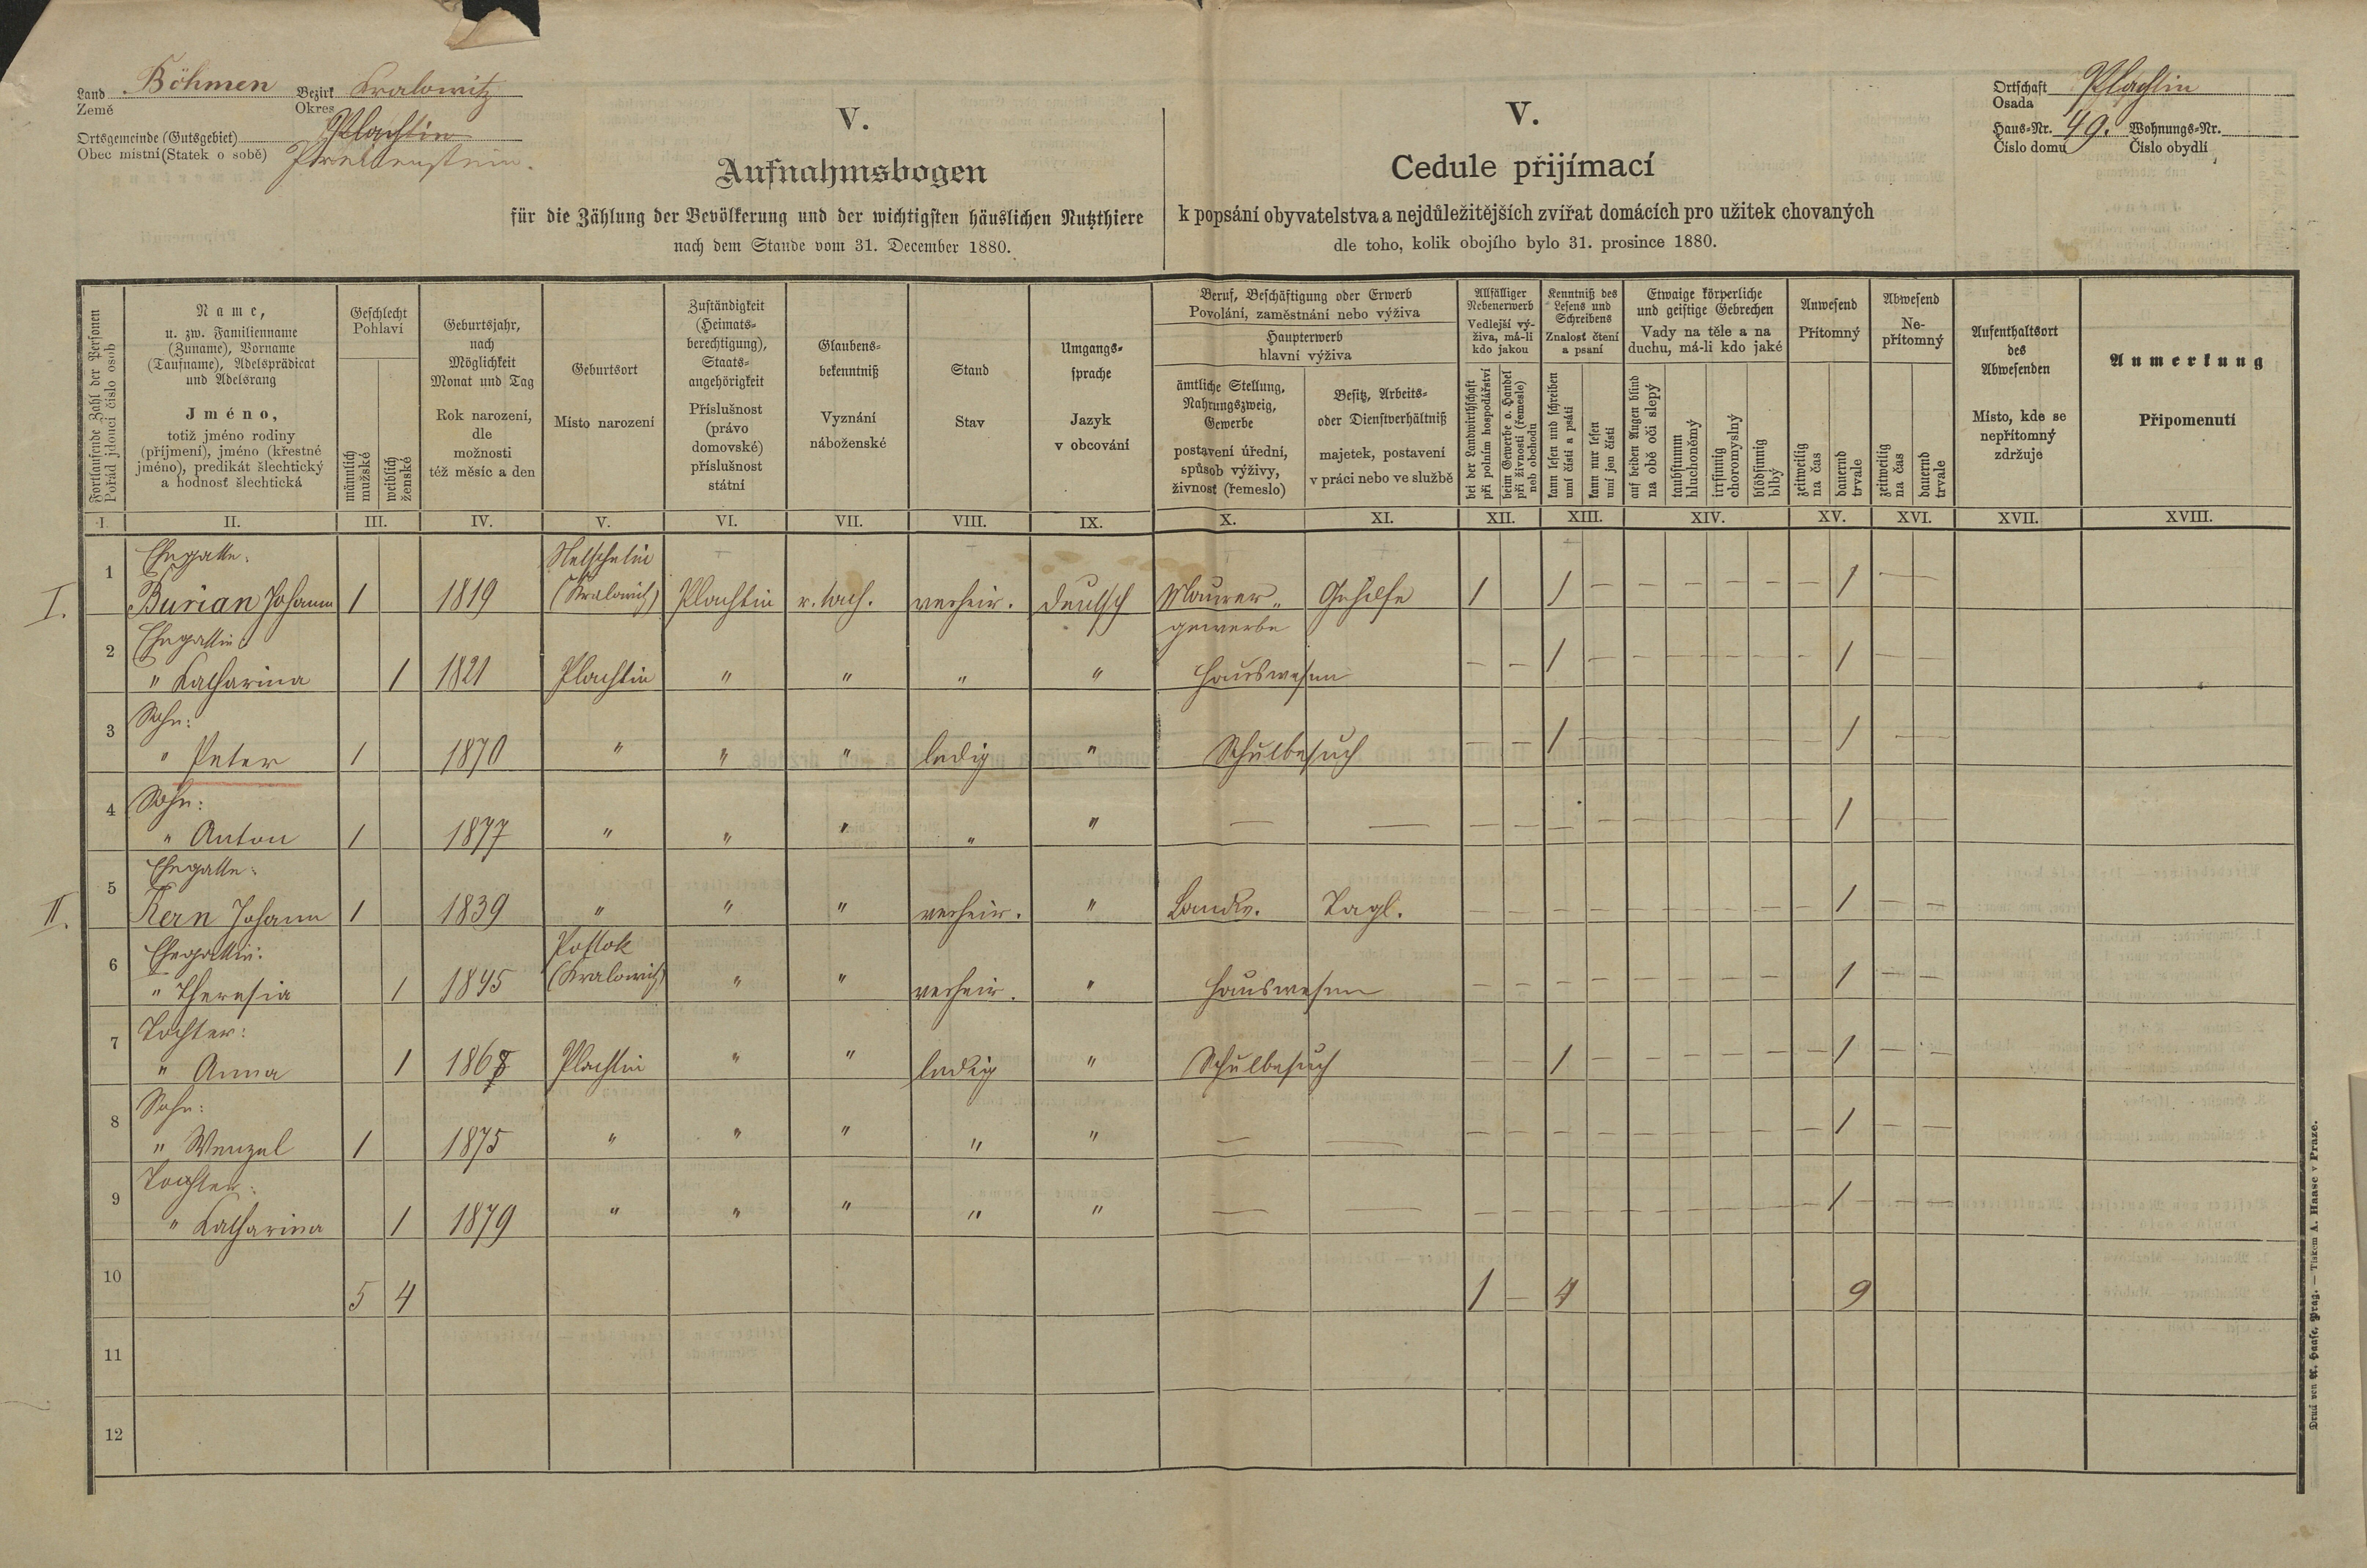 Land Böhmen Bezirk Kralowitz
Země Okres
Ortsgemeinde (Gutsgebiet) Plachtin
Obec místní (Statek o sobě) Preitenstein.
V.
Aufnahmsbogen
für die Zählung der Bevölkerung und der wichtigsten häuslichen Nutzthiere
nach dem Stande vom 31. December 1880.
V.
Cedule přijímací
k popsání obyvatelstva a nejdůležitějších zvířat domácích pro užitek chovaných
dle toho, kolik obojího bylo 31. prosince 1880.
Ortschaft Plachtin
Osada
Haus-Nr. 49. Wohnungs-Nr.
Číslo domu Číslo obydlí
Fortlaufende Zahl der Personen
Pořád jdoucí číslo osob
Name,
u. zw. Familienname
(Zuname), Vorname
(Taufname), Adelsprädicat
und Adelsrang
Jméno,
totiž jméno rodiny
(příjmení), jméno (křestné
jméno), predikát šlechtický
a hodnosť šlechtická
Geschlecht
Pohlaví
männlich
mužské
weiblich
ženské
Geburtsjahr,
nach
Möglichkeit
Monat und Tag
Rok narození,
dle
možnosti
též měsíc a den
Geburtsort
Místo narození
Zuständigkeit
(Heimats-
berechtigung),
Staats-
angehörigkeit
Příslušnost
(právo
domovské)
příslušnost
státní
Glaubens-
bekenntniß
Vyznání
náboženské
Stand
Stav
Umgangs-
sprache
Jazyk
v obcování
Beruf, Beschäftigung oder Erwerb
Povolání, zaměstnání nebo výživa
Haupterwerb
hlavní výživa
ämtliche Stellung,
Nahrungszweig,
Gewerbe
postavení úřední,
spůsob výživy,
živnost (řemeslo)
Besitz, Arbeits-
oder Dienstverhältniß
majetek, postavení
v práci nebo ve službě
Allfälliger
Nebenerwerb
Vedlejší vý-
živa, má-li
kdo jakou
bei der Landwirthschaft
při polním hospodářství
beim Gewerbe o. Handel
při živnosti (řemesle)
neb obchodu
Kenntniß des
Lesens und
Schreibens
Znalosť čtení
a psaní
kann lesen und schreiben
umí čísti a psáti
kann nur lesen
umí jen čísti
Etwaige körperliche
und geistige Gebrechen
Vady na těle a na
duchu, má-li kdo jaké
auf beiden Augen blind
na obě oči slepý
taubstumm
hluchoněmý
irrsinnig
choromyslný
blödsinnig
blbý
Anwesend
Přítomný
zeitweilig
na čas
dauernd
trvale
Abwesend
Ne-
přítomný
zeitweilig
na čas
dauernd
trvale
Aufenthaltsort
des
Abwesenden
Místo, kde se
nepřítomný
zdržuje
Anmerkung
Připomenutí
I. II. III. IV. V. VI. VII. VIII. IX. X. XI. XII. XIII. XIV. XV. XVI. XVII. XVIII.
1 Ehegatte: Netschetin
I. Burian Johann 1 1819 (Kralowitz) Plachtin r. kath. verheir. deutsch Maurer- Gehilfe 1 1 — — — — — — 1 —
gewerbe
2 Ehegattin:
" Katharina 1 1821 Plachtin " " " " Hauswesen — — 1 — — — — — — 1 — —
3 Sohn:
" Peter 1 1870 " " " ledig " Schulbesuch — — 1 — — — — — — 1 —
4 Sohn:
" Anton 1 1877 " " " " " — — — — — — — — — — — 1 — —
5 Ehegatte:
II. Kern Johann 1 1839 " " " verheir. " Landw. Tagl. — — — — — — — — — 1 — —
6 Ehegattin: Potok
" Theresia 1 1845 (Kralowitz) " " verheir. " Hauswesen — — — — — — — — — 1 — —
7 Tochter:
" Anna 1 1868 Plachtin " " ledig " Schulbesuch — — 1 — — — — — — 1 — —
8 Sohn:
" Wenzel 1 1875 " " " " " — — — — — — — — — — — 1 — —
9 Tochter:
" Katharina 1 1879 " " " " " — — — — — — — — — — — 1 — —
10 5 4 1 — 4 9
11
12
Druck von A. Haase, Prag. — Tiskem A. Haase v Praze.